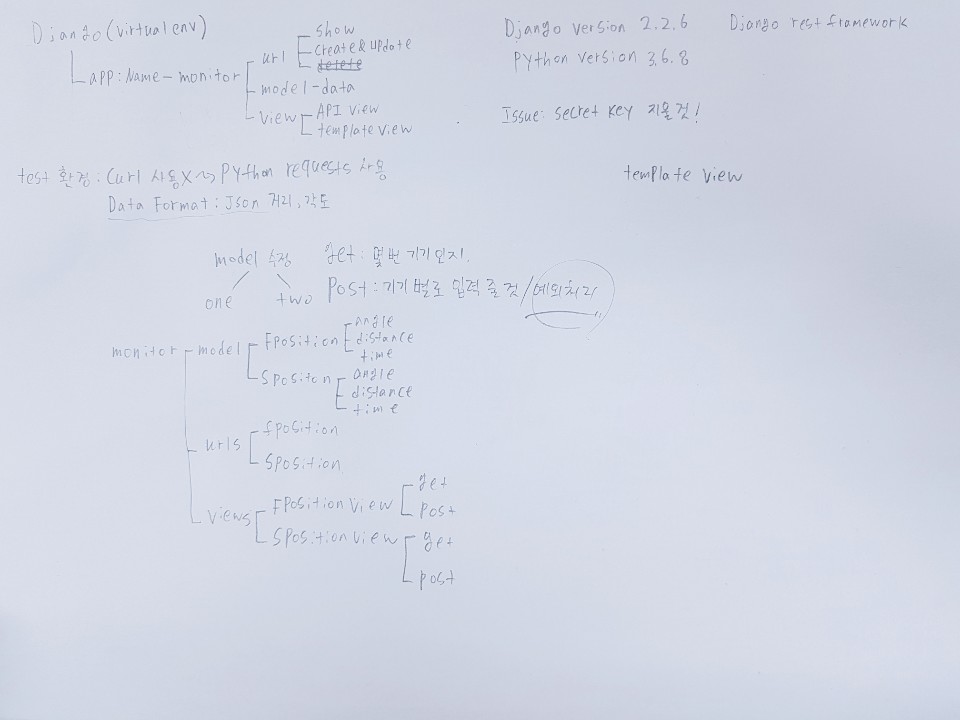 Django(virtual env)
app:Name-monitor
url
show
create & update
delete
model-data
view
API view
template view
Django version 2.2.6
Django rest framework
Python version 3.6.8
Issue: secret key 지울 것!
test 환경: Curl 사용X ~> Python requests 사용
Data Format: Json 거리, 각도
template view
model 수정
one
two
get: 몇번 기기인지.
Post: 기기 별로 입력 줄 것/예외처리
monitor
model
Fposition
Angle
distance
time
Spositon
angle
distance
time
urls
fposition
Sposition
Views
FPosition View
get
Post
SPosition View
get
post